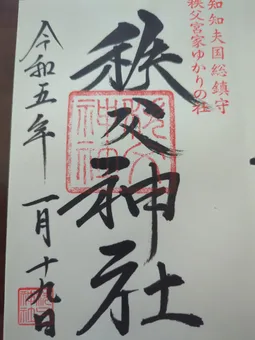 知知夫国総鎮守
秩父宮家ゆかりの社
秩父神社
令和五年
一月十九日